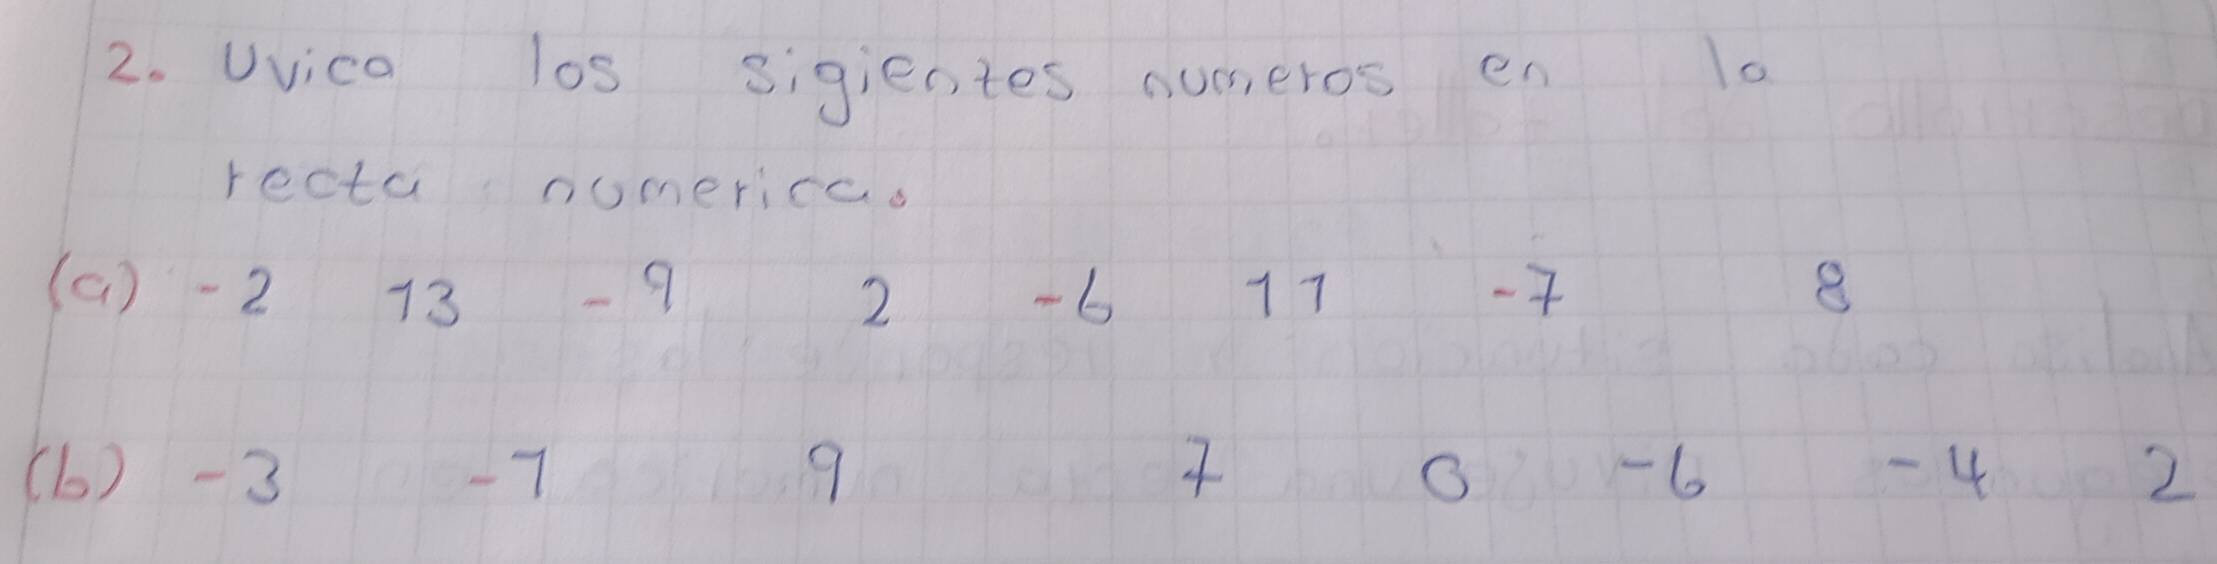 2. Uvica los sigientes numeros en la
recta numerica.
(a) -2 13 -9 2 -6 11 -7 8
(b) -3 -1 9 7 0 -6 -4 2